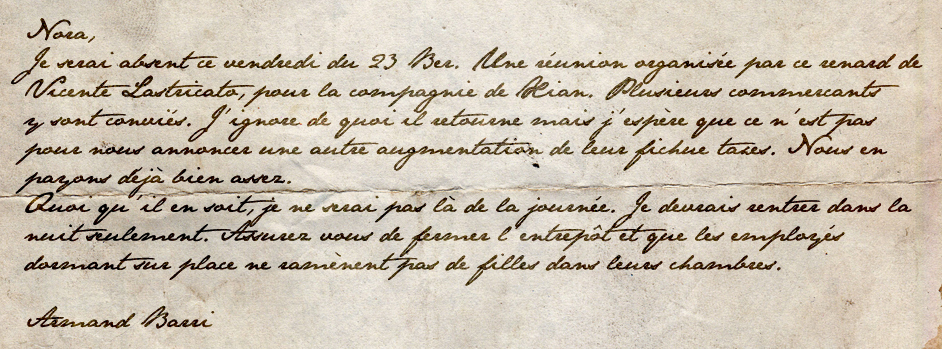 Nora,
Je serai absent ce vendredi du 23 Ber. Une réunion organisée par ce renard de
Vicente Lastricato, pour la compagnie de Hian. Plusieurs commercants
y sont conviés. J'ignore de quoi il retourne mais j'espère que ce n'est pas
pour nous annoncer une autre augmentation de leur fichue taxes. Nous en
payons déjà bien assez.
Quoi qu'il en soit, je ne serai pas là de la journée. Je devrais rentrer dans la
nuit seulement. Assurez vous de fermer l'entrepôt et que les employés
dormant sur place ne ramènent pas de filles dans leurs chambres.
Armand Barri